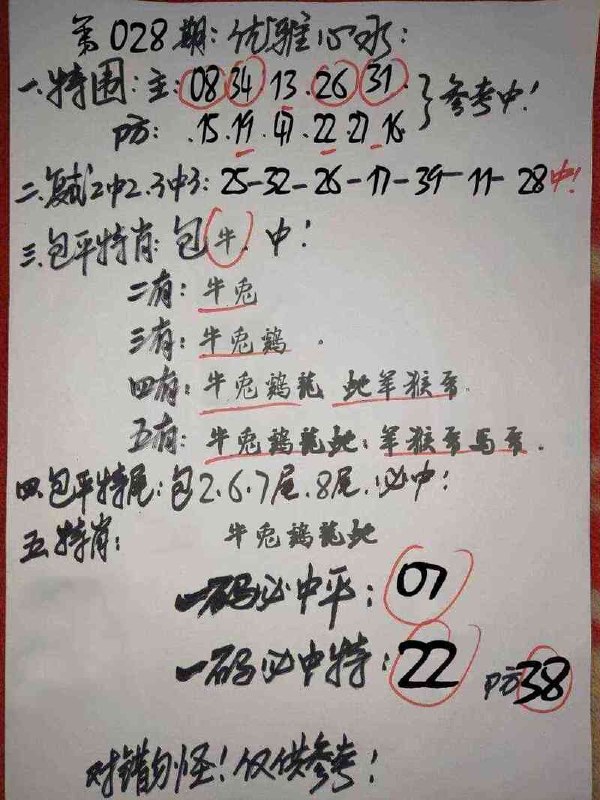 第028期:优雅心水:
一.特围:主:08 34 13.26 31.
参考中!
P方: .15.19.47.22.27.16.
二.复式2中2.3中3: 25-32-26-17-39-11-28中!
三.包平特肖:包牛.中!
二有:牛兔
三有:牛兔鷄.
四有:牛兔鷄龍 蛇羊猴
五有:牛兔鷄龍蛇:羊猴 馬
四.包平特尾:包2.6.7尾.8尾.必中!
五.特肖: 牛兔鷄龍蛇
一码必中平: 07
一码必中特: 22 P方38
对错勿怪!仅供参考!